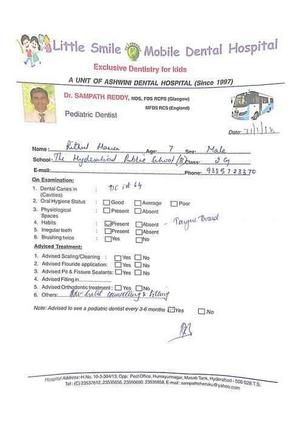 Little Smile Mobile Dental Hospital
Exclusive Dentistry for kids
A UNIT OF ASHWINI DENTAL HOSPITAL (Since 1997)
Dr. SAMPATH REDDY, MDS, FDS RCPS (Glasgow)
MFDS RCS (England)
Pediatric Dentist
Date:
Name: Age: 7 Sex: Male
School: The Hyderabad Public School
E-mail: Phone:
On Examination:
1. Dental Caries in (Cavities) : DC
2. Oral Hygiene Status : Good Average Poor
3. Physiological Spaces : Present Absent
4. Habits : Present Absent
5. Irregular teeth : Present Absent
6. Brushing twice : Yes No
Advised Treatment:
1. Advised Scaling/Cleaning : Yes No
2. Advised Flouride application: Yes No
3. Advised Pit & Fissure Sealants: Yes No
4. Advised Filling in
5. Advised Orthodontic treatment: Yes No
6. Others: counselling & filling
Note: Advised to see a pediatric dentist every 3-6 months Yes No
Hospital Address: H.No. 10-3-304/13, Opp: Post Office, Humayunnagar, Masab Tank, Hyderabad - 500 028 T.S.